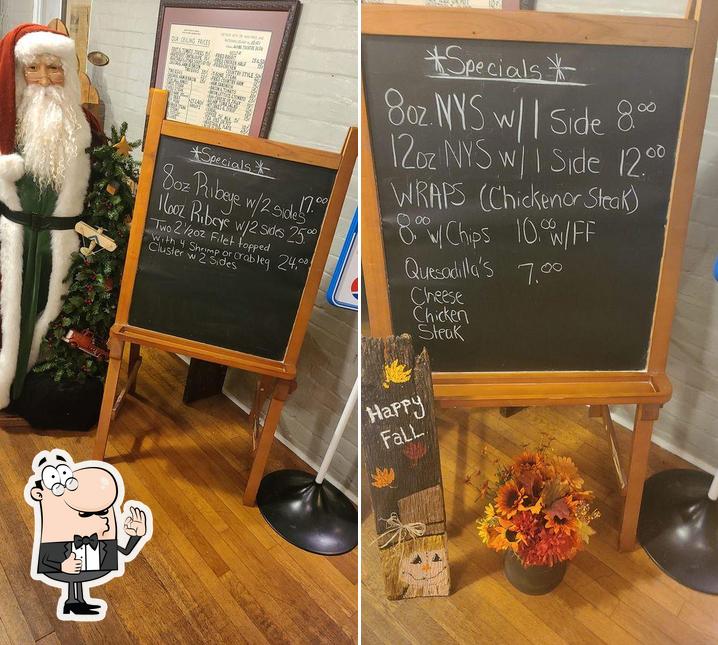 OUR CEILING PRICES
*Specials*
8oz Ribeye w/2 sides 17.00
16oz Ribeye w/2 sides 25.00
Two 2 1/2oz Filet topped
with 4 Shrimp or crab leg 24.00
Cluster w 2 Sides
*Specials*
8oz. NYS w/1 Side 8.00
12oz NYS w/1 Side 12.00
WRAPS (Chicken or Steak)
8.00 w/Chips 10.00 w/FF
Quesadilla's 7.00
Cheese
Chicken
Steak
Happy
Fall